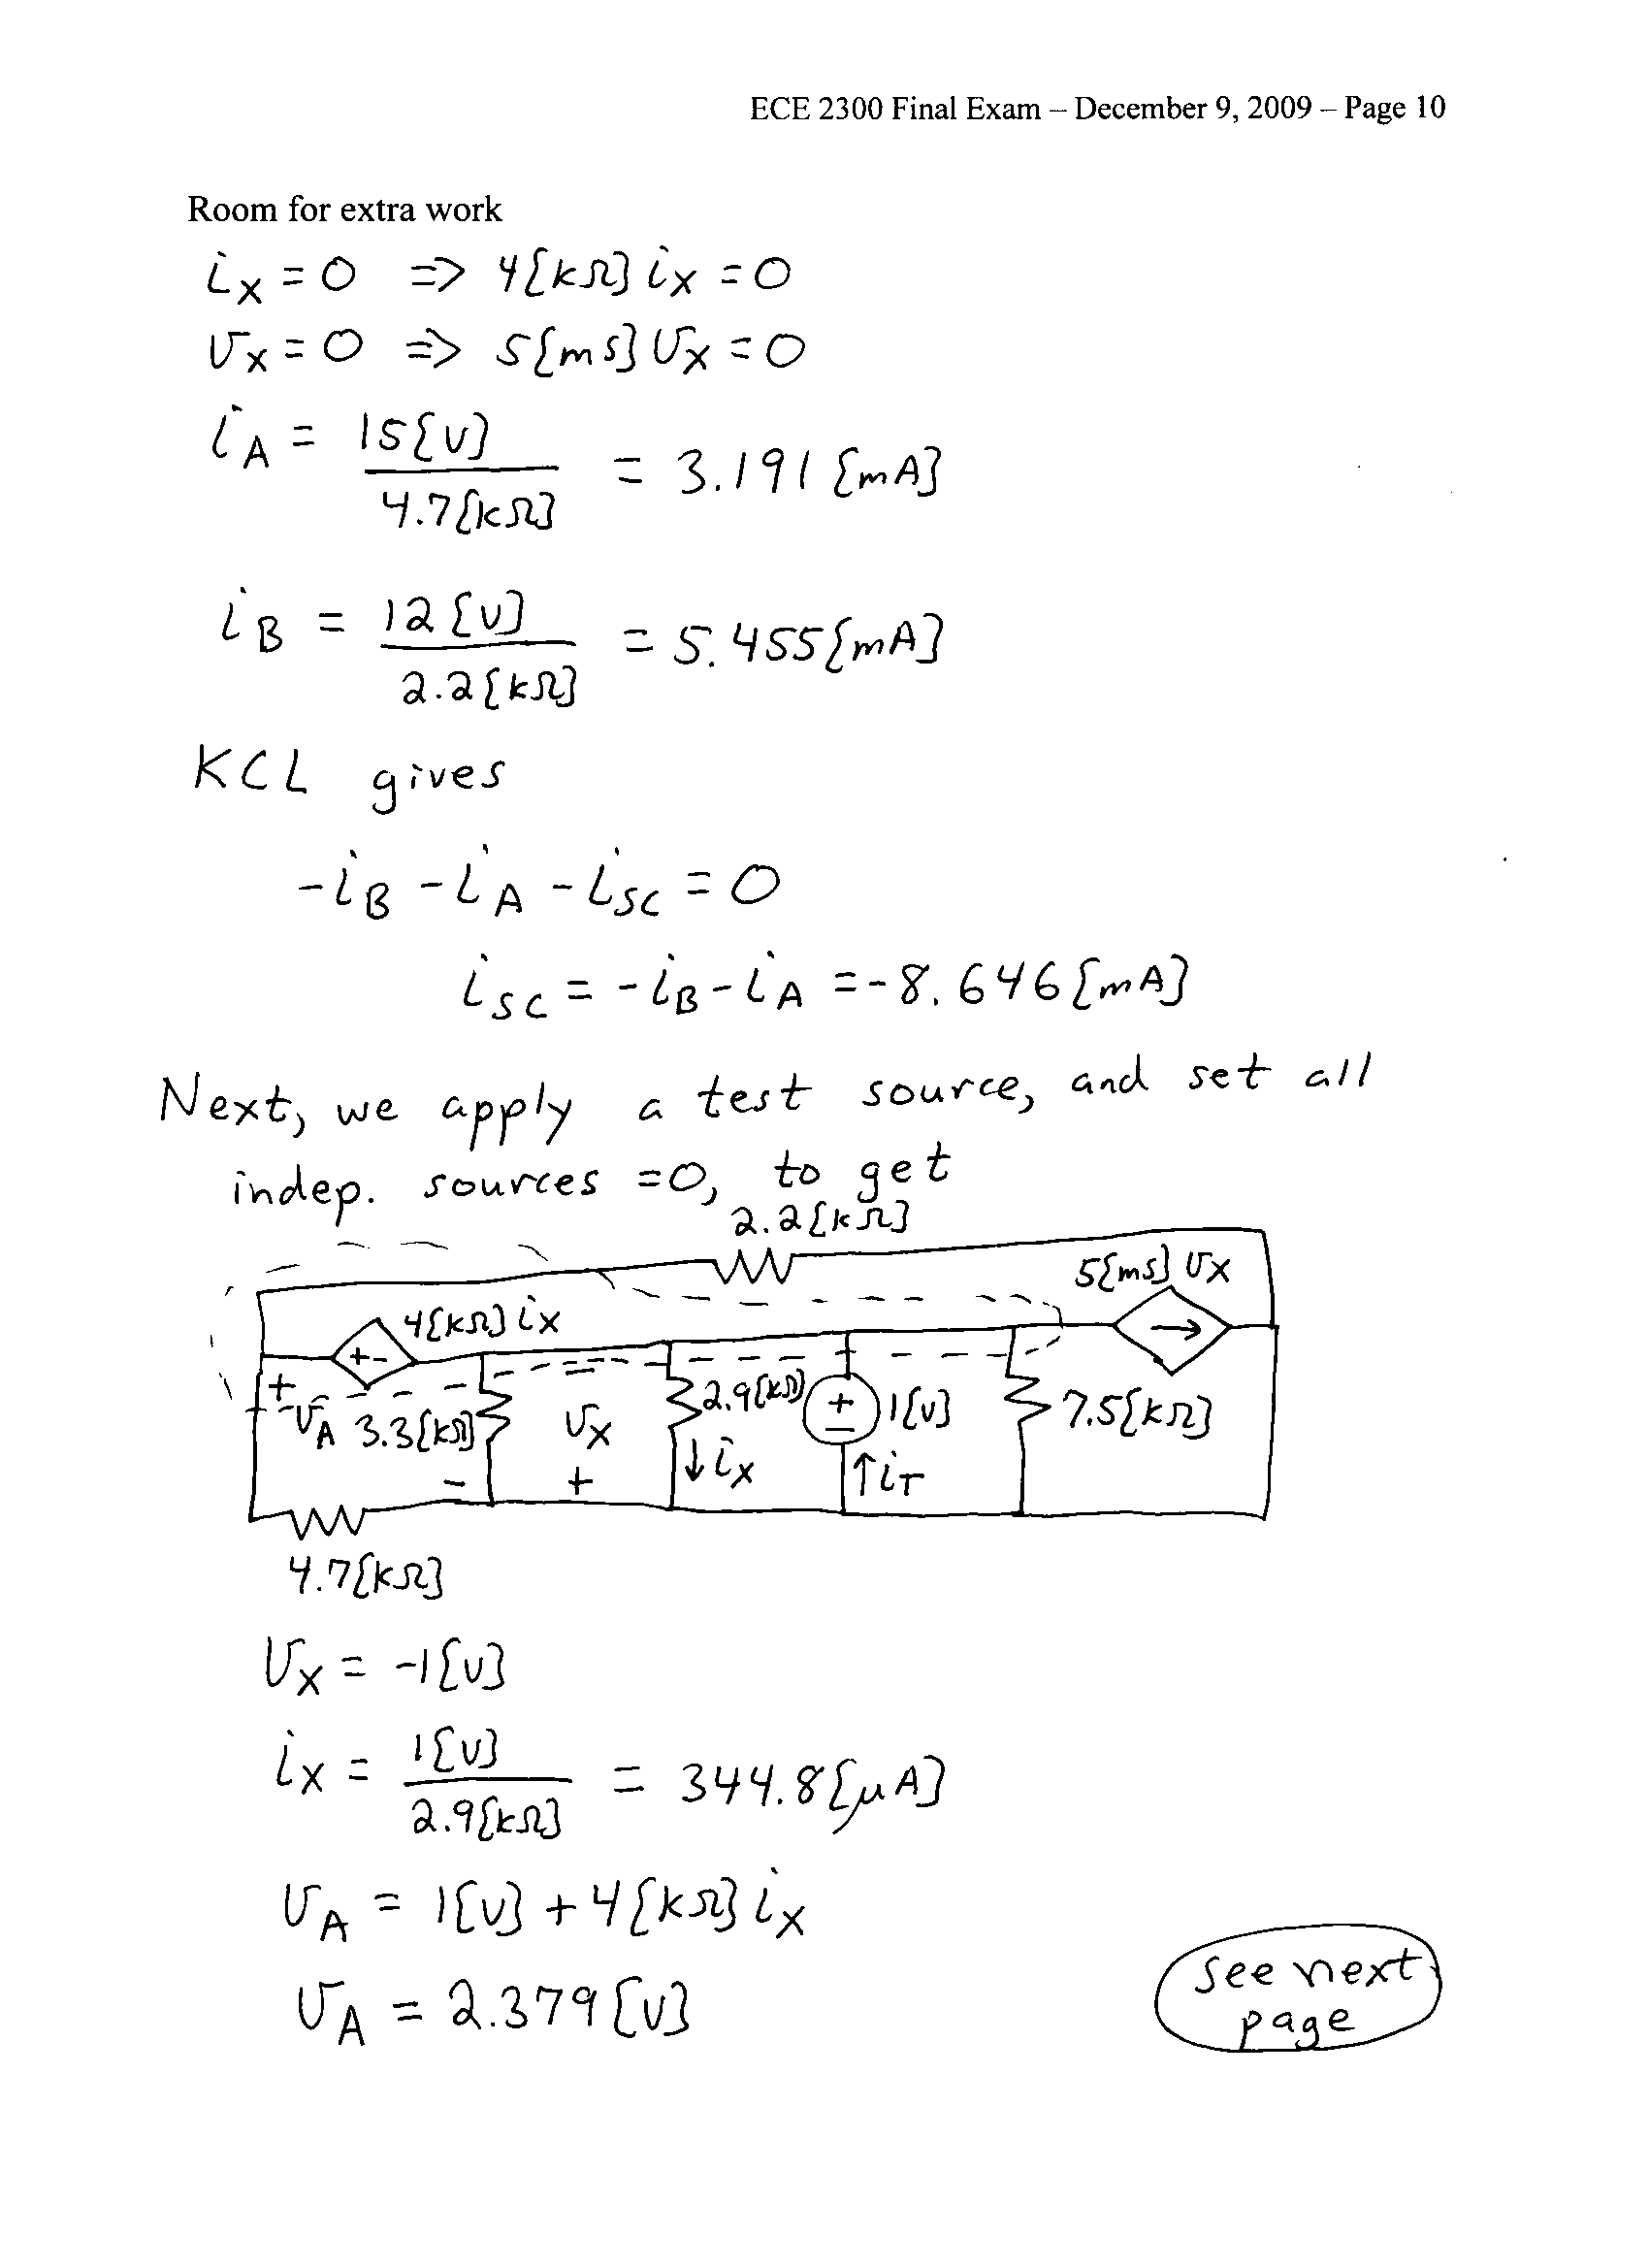 ECE 2300 Final Exam – December 9, 2009 – Page 10
Room for extra work
iX = 0 => 4[kΩ] iX = 0
vX = 0 => 5[mS] vX = 0
iA = 15[V] / 4.7[kΩ] = 3.191 [mA]
iB = 12[V] / 2.2[kΩ] = 5.455[mA]
KCL gives
-iB - iA - iSC = 0
iSC = -iB - iA = -8.646[mA]
Next, we apply a test source, and set all
indep. sources =0, to get
2.2[kΩ]
5[mS] vX
4[kΩ] iX
+ -
+
vA
-
3.3[kΩ]
vX
+
2.9[kΩ]
↓iX
+
-
1[V]
↑iT
7.5[kΩ]
4.7[kΩ]
vX = -1[V]
iX = 1[V] / 2.9[kΩ] = 344.8[μA]
vA = 1[V] + 4[kΩ] iX
vA = 2.379[V]
see next
page